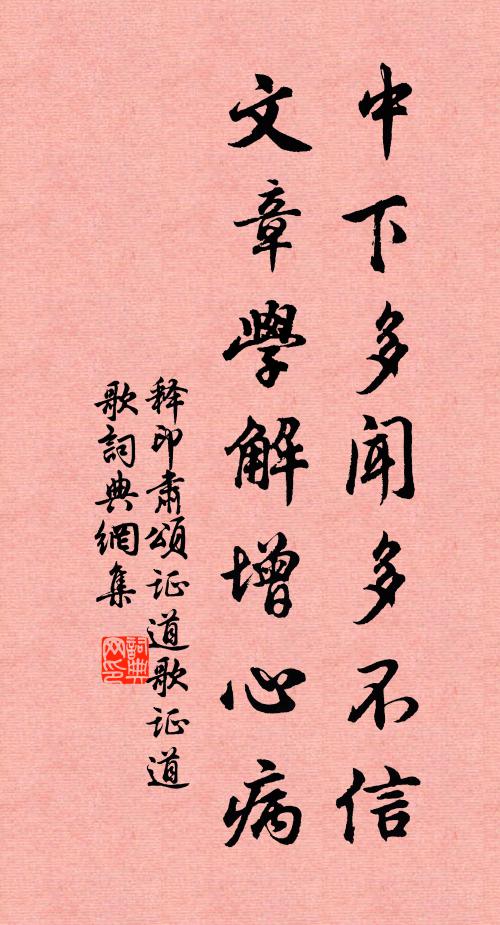 中下多聞多不信
文章學解增心病
释印肃頌证道歌证道
歌詞典網集
詞典
网印